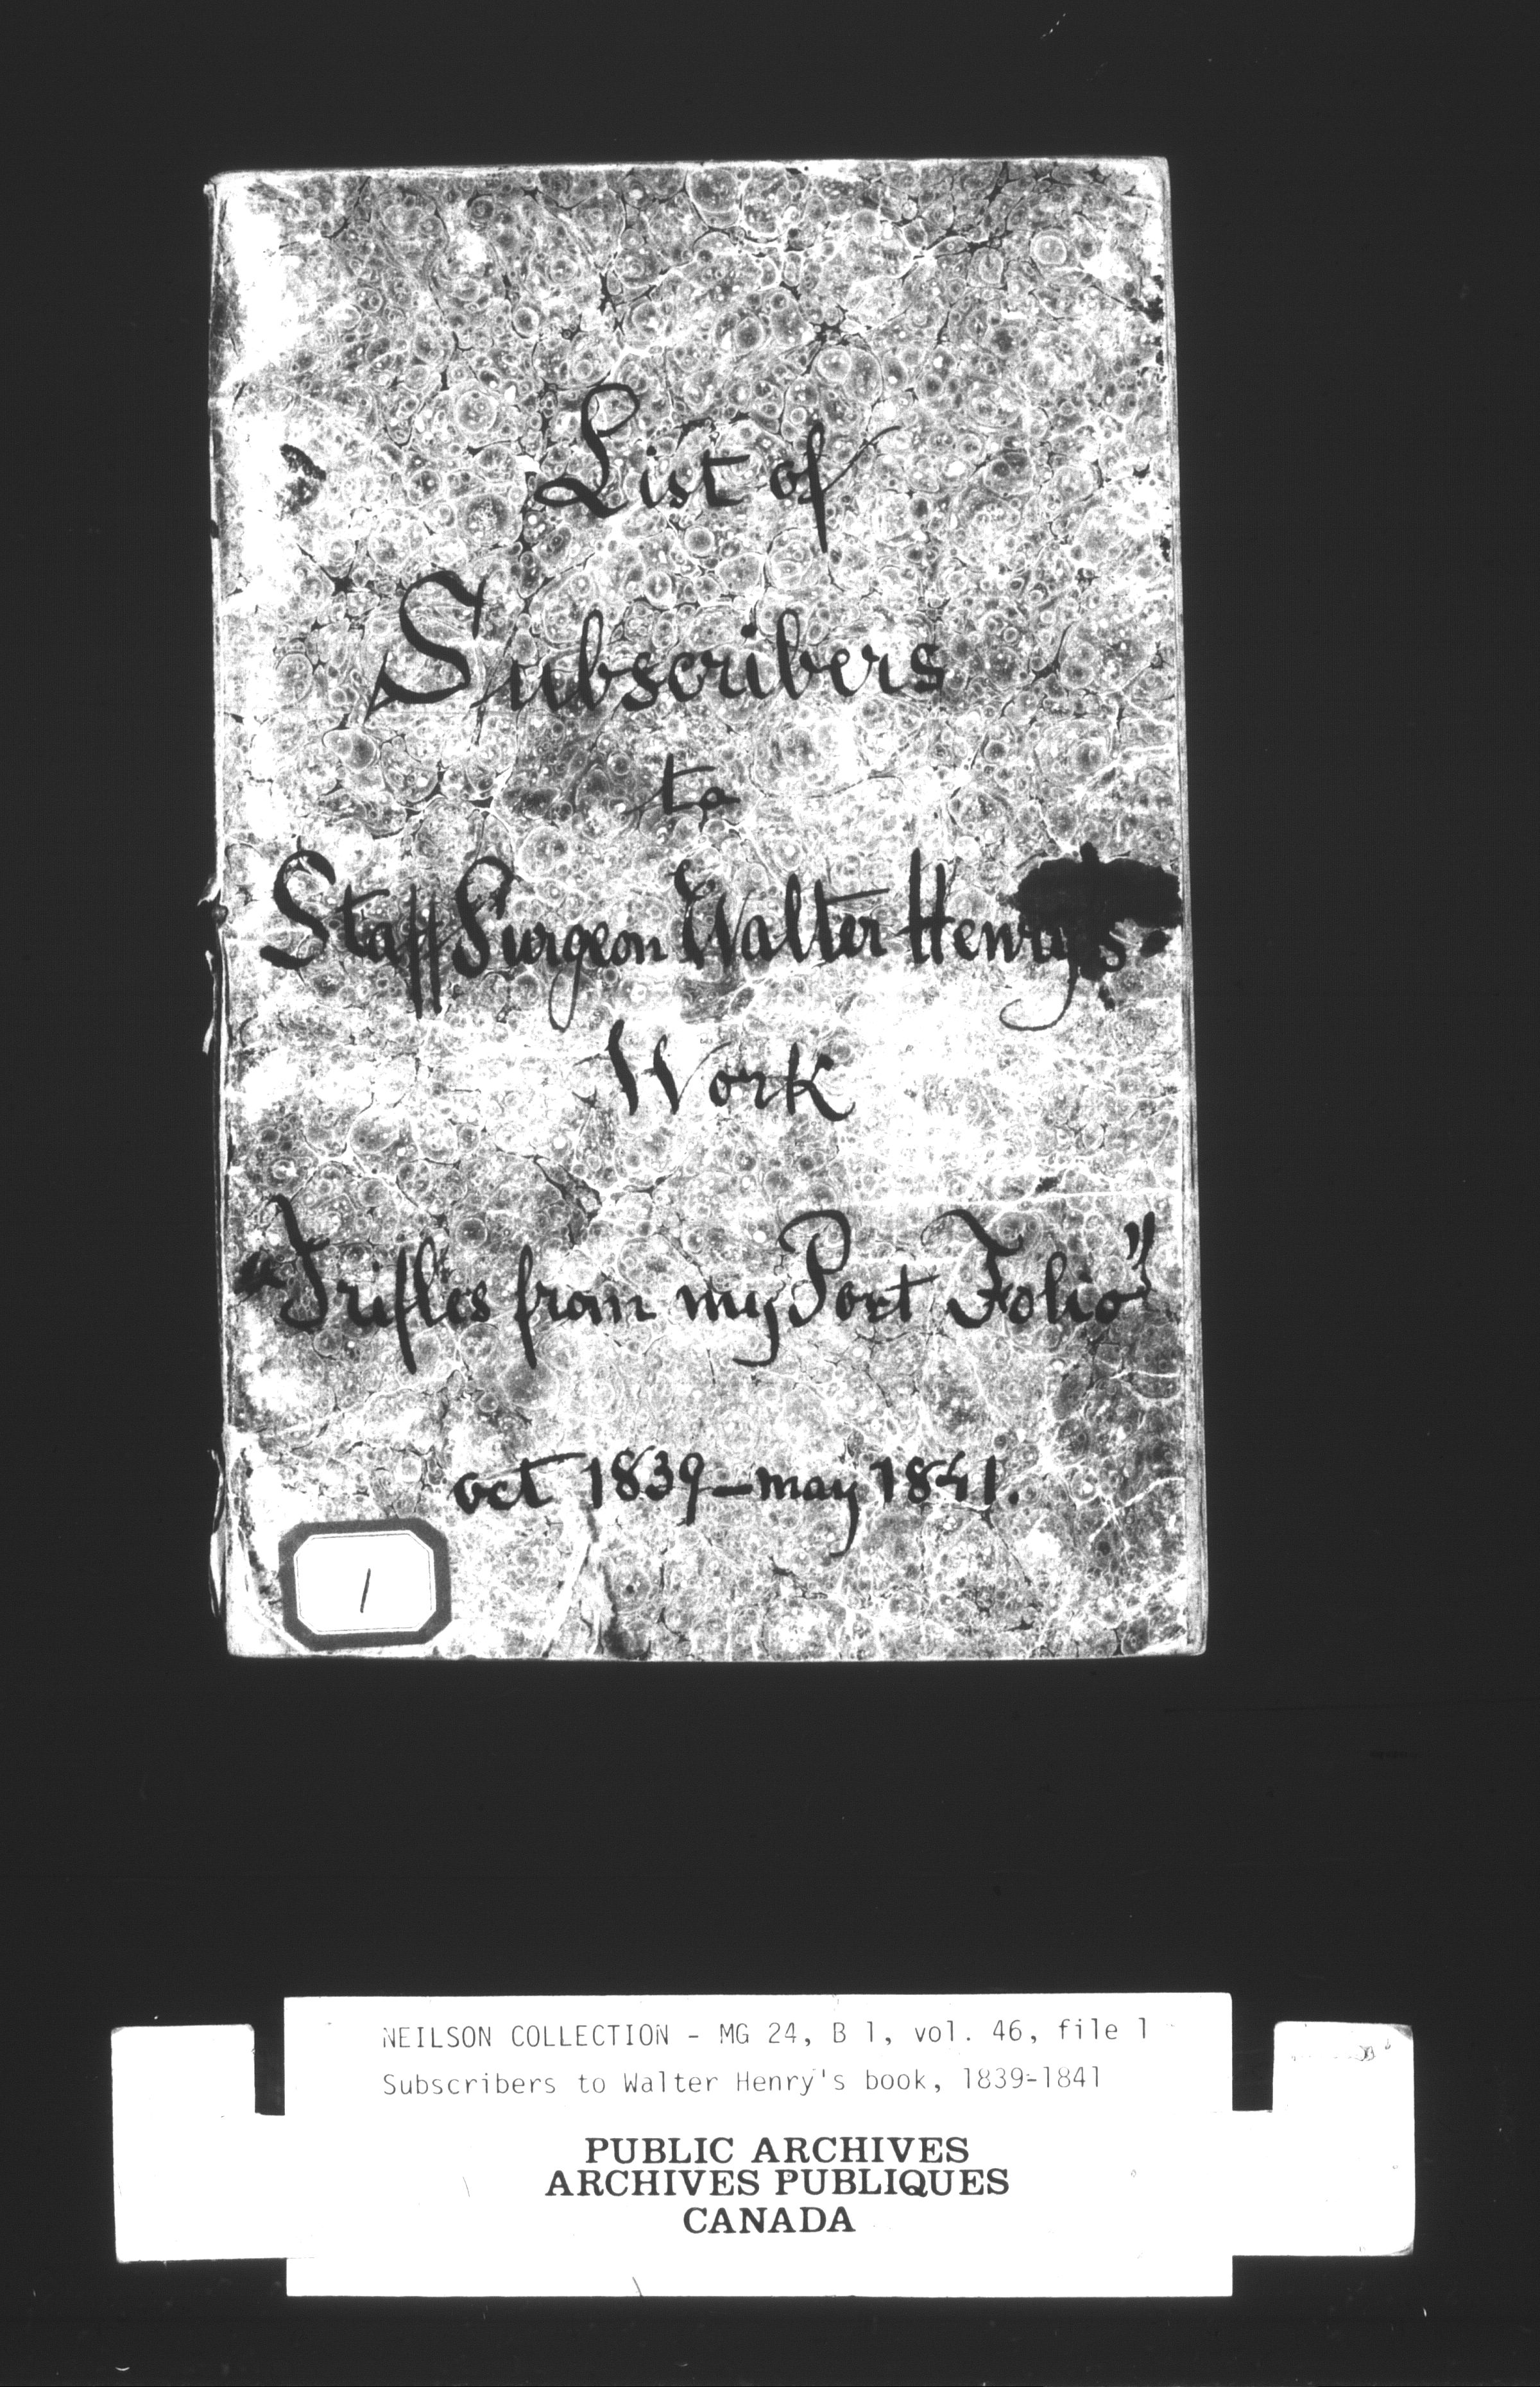 List of
Subscribers
to
Staff Surgeon Walter Henry's
Work
"Trifles from my Port Folio"
oct 1839 - may 1841.
1
NEILSON COLLECTION - MG 24, B 1, vol. 46, file 1
Subscribers to Walter Henry's book, 1839-1841
PUBLIC ARCHIVES
ARCHIVES PUBLIQUES
CANADA